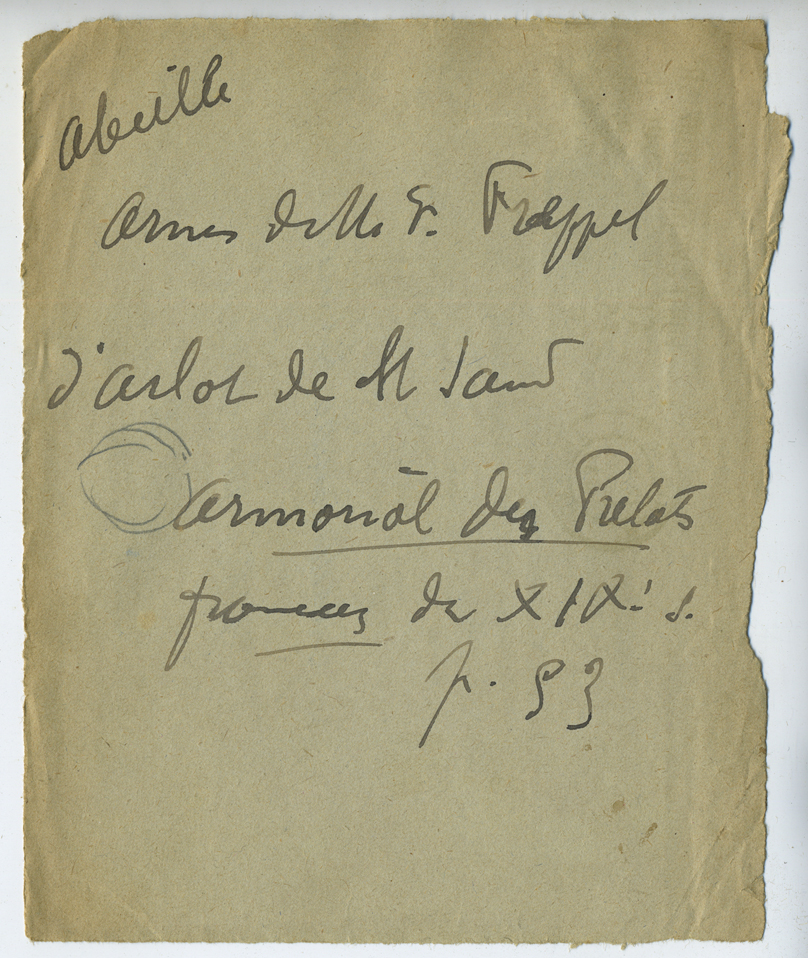 Abeille
Armes de Mgr. Freppel
d'Arlot de St Saud
Armorial des Prelats
français du XIXe s.
p. 93